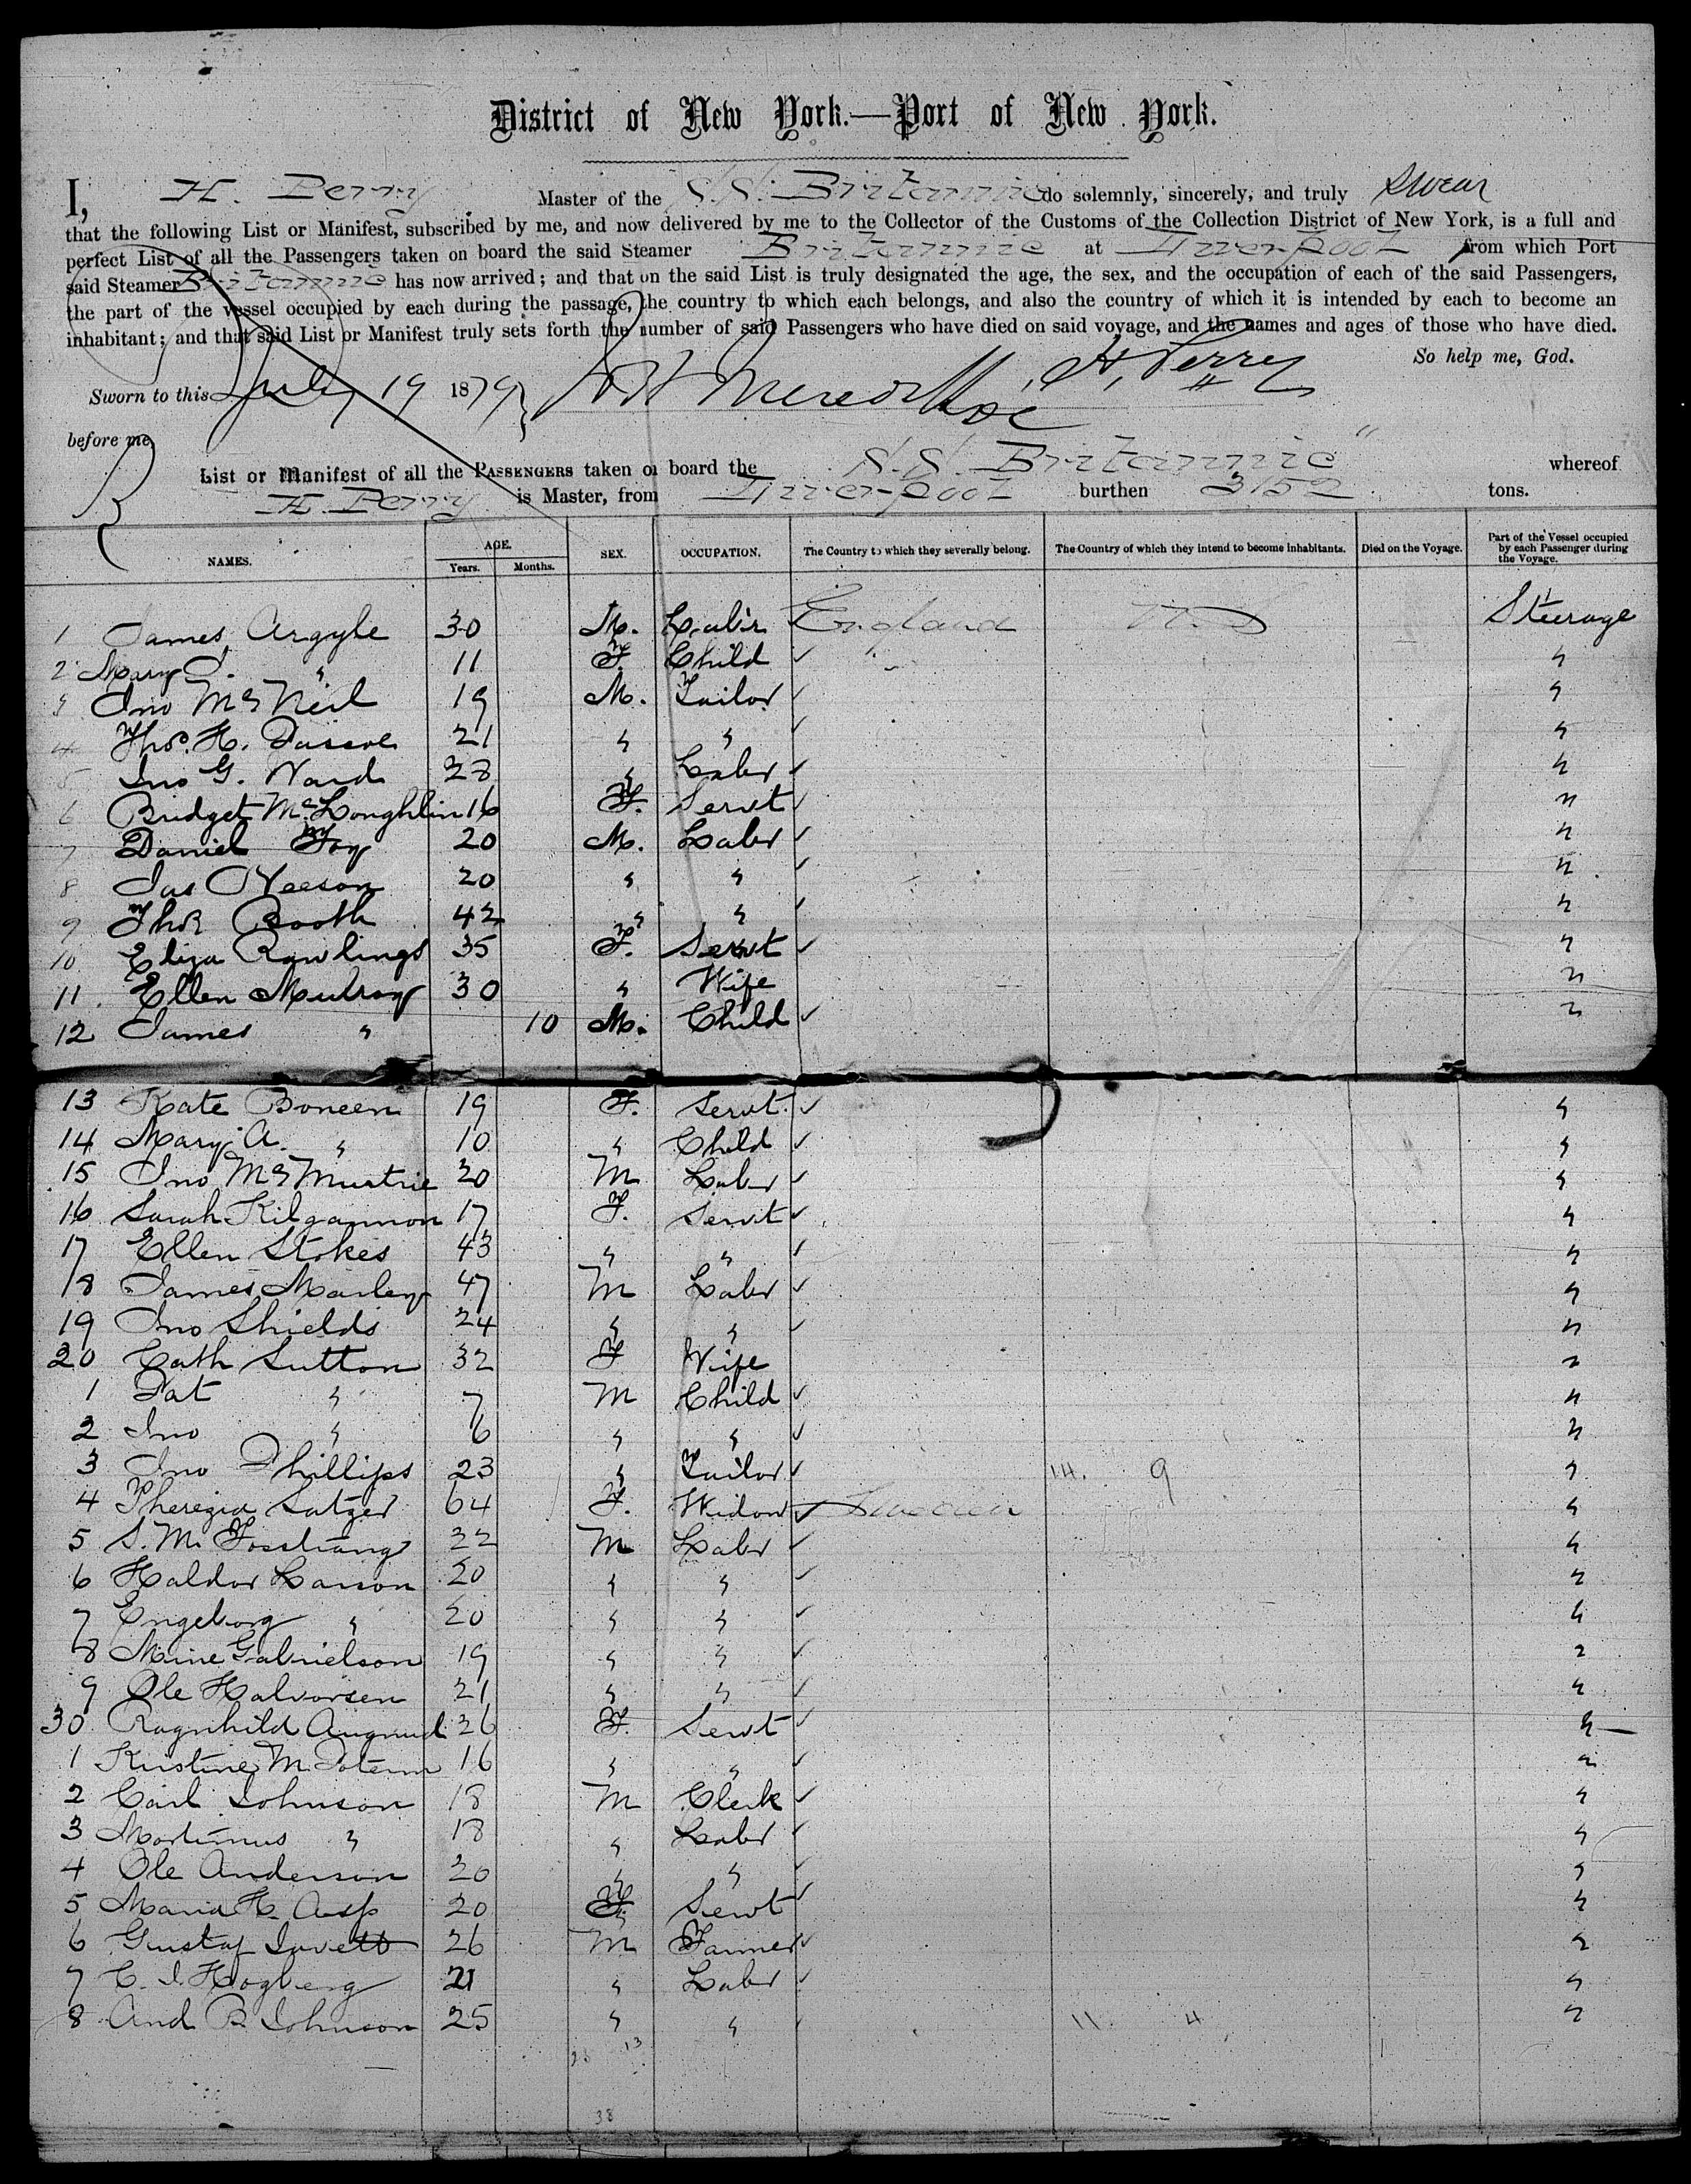 District of New York.—Port of New York.
I, H. Perry Master of the S.S. Britannic do solemnly, sincerely, and truly swear
that the following List or Manifest, subscribed by me, and now delivered by me to the Collector of the Customs of the Collection District of New York, is a full and
perfect List of all the Passengers taken on board the said Steamer Britannic at Liverpool from which Port
said Steamer Britannic has now arrived; and that on the said List is truly designated the age, the sex, and the occupation of each of the said Passengers,
the part of the vessel occupied by each during the passage, the country to which each belongs, and also the country of which it is intended by each to become an
inhabitant; and that said List or Manifest truly sets forth the number of said Passengers who have died on said voyage, and the names and ages of those who have died.
So help me, God.
Sworn to this July 19 1879 H. Perry
before me,
List or Manifest of all the Passengers taken on board the S.S. Britannic" whereof
H. Perry is Master, from Liverpool burthen 3152 tons.
NAMES. AGE. Years. Months. SEX. OCCUPATION. The Country to which they severally belong. The Country of which they intend to become inhabitants. Died on the Voyage. Part of the Vessel occupied by each Passenger during the Voyage.
1 James Argyle 30 M. Labr England U.S Steerage
2 Mary J. " 11 F. Child ✓ "
3 Jno McNeil 19 M. Tailor ✓ "
4 Thos. H. Pascoe 21 " " ✓ "
5 Jno G. Ward 28 " Labr ✓ "
6 Bridget McLoughlin 16 F. Servt ✓ "
7 Daniel Foy 20 M. Labr ✓ "
8 Jas Neeson 20 " " ✓ "
9 Thos Booth 42 " " ✓ "
10 Eliza Rawlings 35 F. Servt ✓ "
11 Ellen Mulroy 30 " Wife "
12 James " 10 M. Child ✓ "
13 Kate Boneen 19 F. Servt. ✓ "
14 Mary A. " 10 " Child ✓ "
15 Jno McMurtrie 20 M Labr ✓ "
16 Sarah Kilgannon 17 F. Servt ✓ "
17 Ellen Stokes 43 " " ✓ "
18 James Marley 47 M Labr ✓ "
19 Jno Shields 24 " " ✓ "
20 Cath Sutton 32 F Wife "
1 Pat " 7 M Child ✓ "
2 Jno " 6 " " ✓ "
3 Jno Phillips 23 " Tailor ✓ 14. 9 "
4 Therezia Satzer 64 F. Widow ✓ Sweden "
5 S. M. Fosstrang 22 M Labr ✓ "
6 Haldor Larson 20 " " ✓ "
7 Engeborg " 20 " " ✓ "
8 Mine Gabrielson 19 " " ✓ "
9 Ole Halvorsen 21 " " ✓ "
30 Ragnhild 26 F. Servt ✓ "
1 Kristine M. 16 " " ✓ "
2 Carl Johnson 18 M Clerk ✓ "
3 Martinus " 18 " Labr ✓ "
4 Ole Anderson 20 " " ✓ "
5 Maria H. Asp 20 F. Servt ✓ "
6 Gustaf 26 M Farmer ✓ "
7 C. J. Hogberg 21 " Labr ✓ "
8 And B. Johnson 25 " " 11. 4 "
13
38